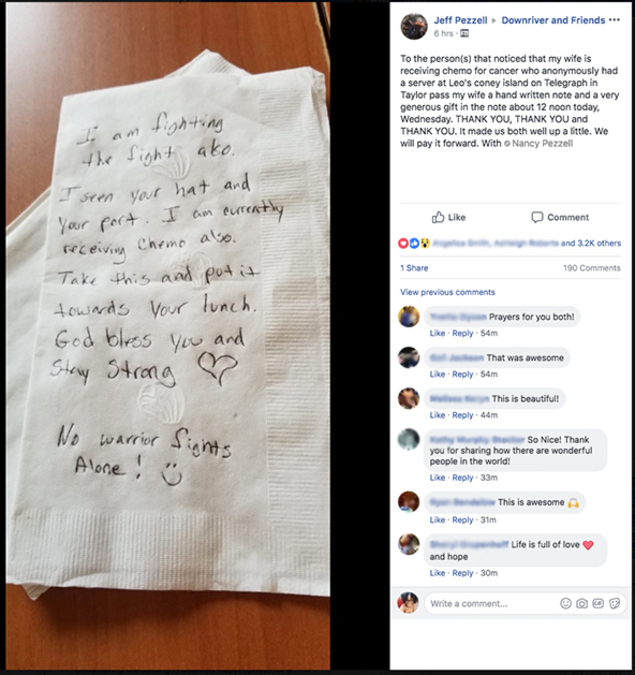 I am fighting
the fight also.
I seen your hat and
your port. I am currently
receiving Chemo also.
Take this and put it
towards your lunch.
God bless you and
Stay Strong
No warrior fights
Alone!
Jeff Pezzell ▸ Downriver and Friends
6 hrs ·
To the person(s) that noticed that my wife is
receiving chemo for cancer who anonymously had
a server at Leo's coney island on Telegraph in
Taylor pass my wife a hand written note and a very
generous gift in the note about 12 noon today,
Wednesday. THANK YOU, THANK YOU and
THANK YOU. It made us both well up a little. We
will pay it forward. With Nancy Pezzell
Like Comment
and 3.2K others
1 Share 190 Comments
View previous comments
Prayers for you both!
Like · Reply · 54m
That was awesome
Like · Reply · 54m
This is beautiful!
Like · Reply · 44m
So Nice! Thank
you for sharing how there are wonderful
people in the world!
Like · Reply · 33m
This is awesome
Like · Reply · 31m
Life is full of love
and hope
Like · Reply · 30m
Write a comment...
GIF